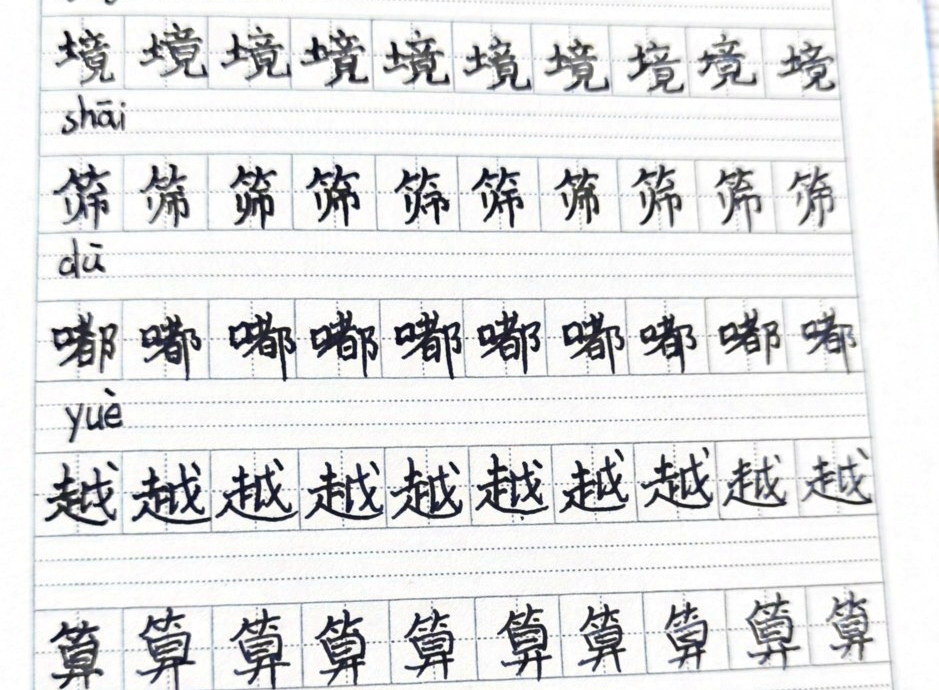 境境境境境境境境境境
shāi
筛筛筛筛筛筛筛筛筛筛
dū
嘟嘟嘟嘟嘟嘟嘟嘟嘟嘟
yuè
越越越越越越越越越越
算算算算算算算算算算